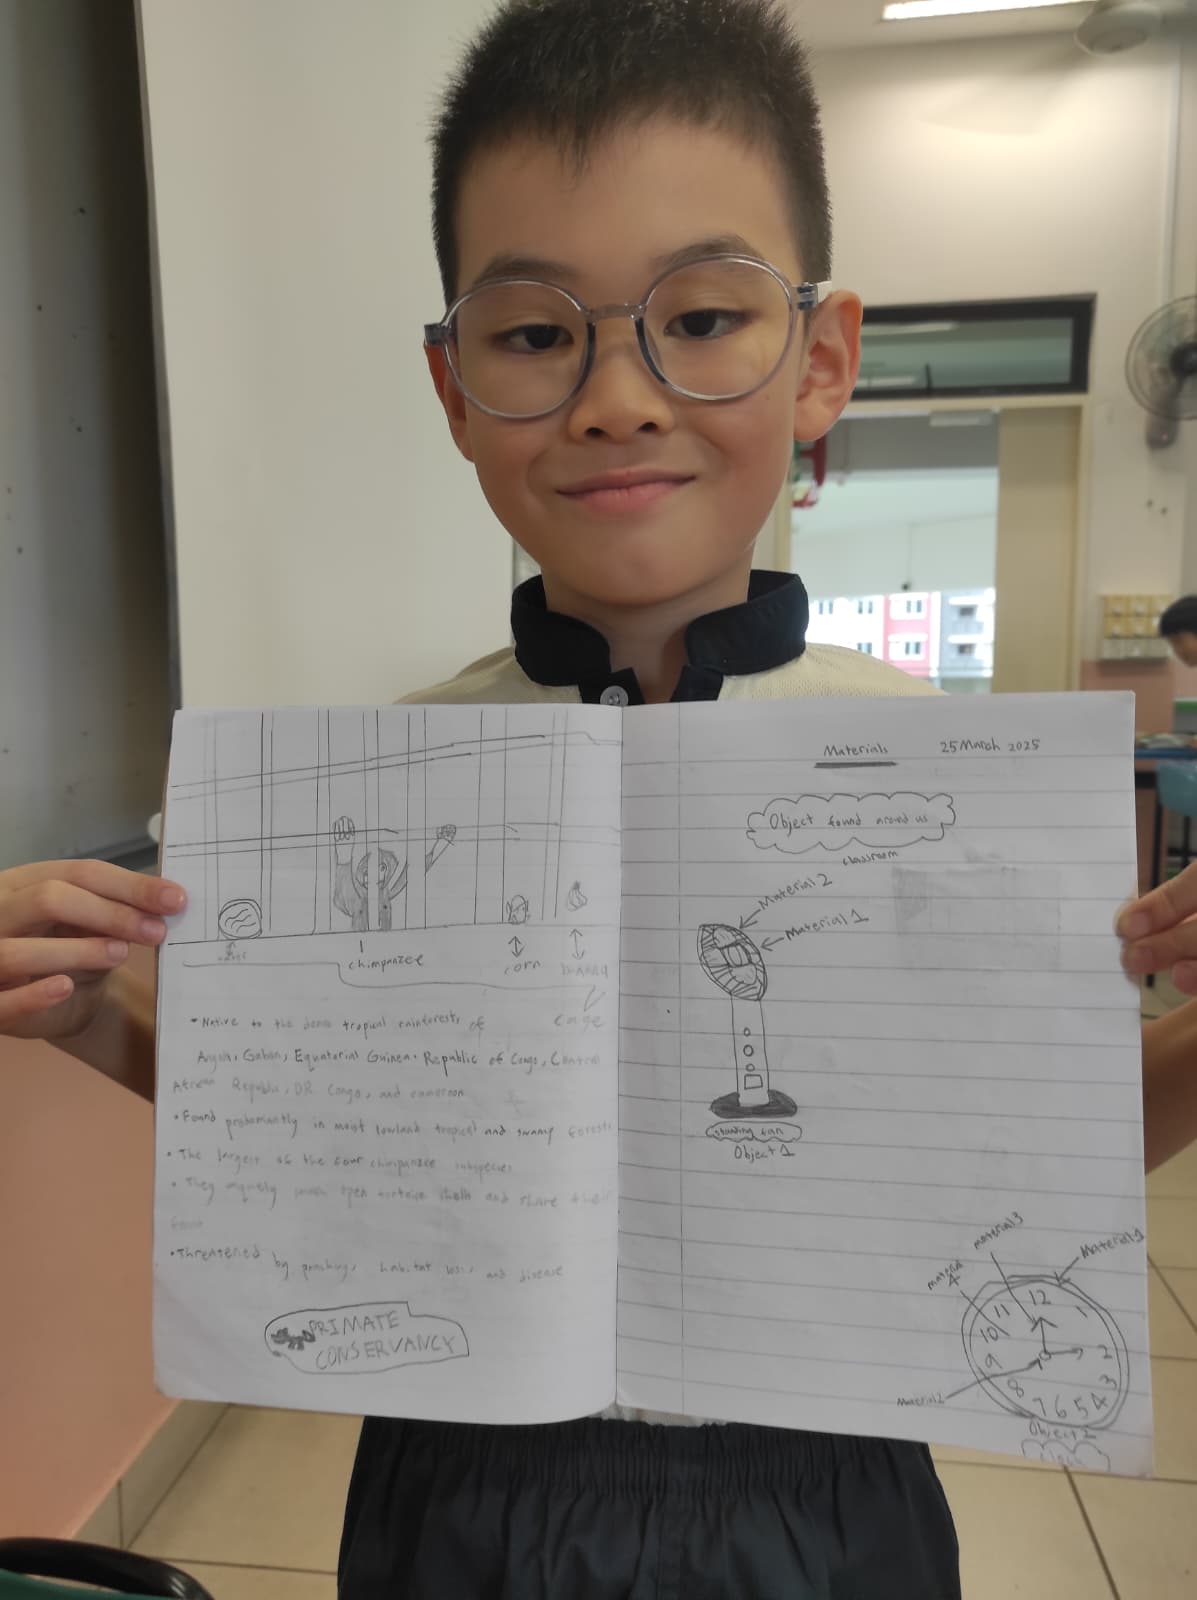 chimpanzee
corn
banana
cage
• Native to the dense tropical rainforests of
Angola, Gabon, Equatorial Guinea, Republic of Congo, Central
African Republic, DR Congo, and cameroon
• Found predominantly in moist lowland tropical and swamp forests
• The largest of the four chimpanzee subspecies
• They open tortoise shells and share their
• Threatened by poaching, habitat loss, and disease
PRIMATE
CONSERVANCY
Materials 25 March 2025
Object found around us
classroom
Material 2
Material 1
standing fan
Object 1
material 3
Material 1
material
4
12
11
1
10
2
9
3
8
4
7 6 5
Material 2
Object 2
clock